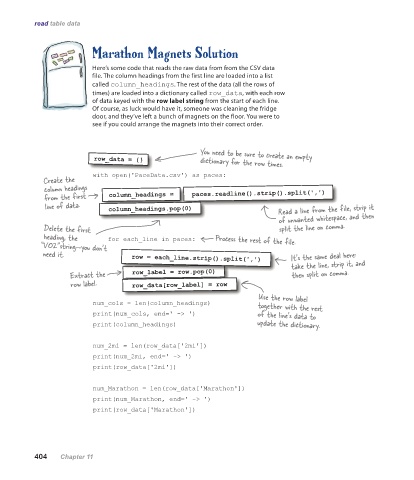 read table data
Marathon Magnets Solution
Here's some code that reads the raw data from from the CSV data
file. The column headings from the first line are loaded into a list
called column_headings. The rest of the data (all the rows of
times) are loaded into a dictionary called row_data, with each row
of data keyed with the row label string from the start of each line.
Of course, as luck would have it, someone was cleaning the fridge
door, and they've left a bunch of magnets on the floor. You were to
see if you could arrange the magnets into their correct order.
row_data = {}
You need to be sure to create an empty
dictionary for the row times.
with open('PaceData.csv') as paces:
Create the
column headings
from the first
line of data.
column_headings =
paces.readline().strip().split(',')
column_headings.pop(0)
Read a line from the file, strip it
of unwanted whitespace, and then
split the line on comma.
Delete the first
heading, the
"VO2" string—you don't
need it.
for each_line in paces:
Process the rest of the file.
row = each_line.strip().split(',')
It's the same deal here:
take the line, strip it, and
then split on comma.
Extract the
row label.
row_label = row.pop(0)
row_data[row_label] = row
Use the row label
together with the rest
of the line's data to
update the dictionary.
num_cols = len(column_headings)
print(num_cols, end=' -> ')
print(column_headings)
num_2mi = len(row_data['2mi'])
print(num_2mi, end=' -> ')
print(row_data['2mi'])
num_Marathon = len(row_data['Marathon'])
print(num_Marathon, end=' -> ')
print(row_data['Marathon'])
404 Chapter 11